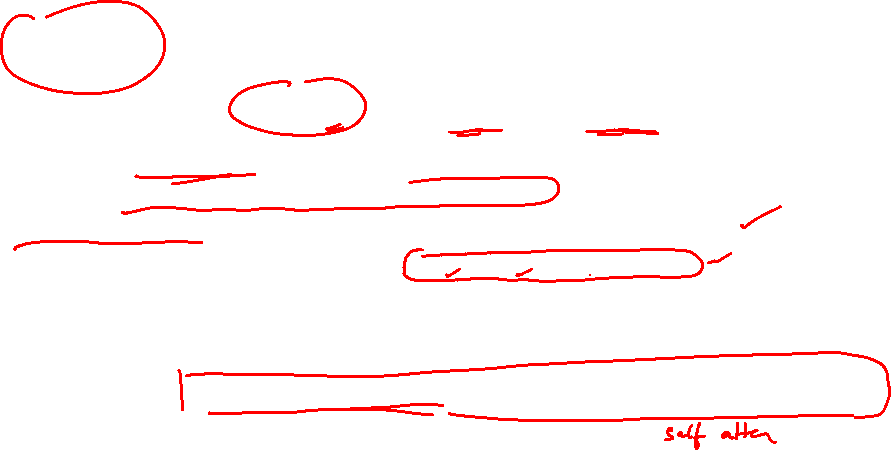 self atten